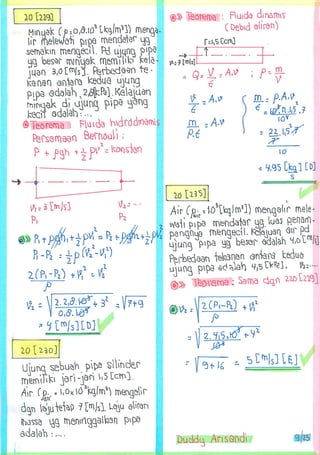 20 [229]
Minyak (ρ=0,8.10³ [kg/m³]) menga-
lir melewati pipa mendatar yg
semakin mengecil. Pd ujung pipa
yg besar minyak memiliki kela-
juan 3,0 [m/s]. Perbedaan te-
kanan antara kedua ujung
pipa adalah 2,8 [kPa]. Kelajuan
minyak di ujung pipa yang
kecil adalah: ...
Teorema : Fluida hidrodinamis
Persamaan Bernouli :
P + ρgh + ½ρv² = konstan
V₁ = 3 [m/s]
V₂ = ...
P₁
P₂
P₁ + ρgh₁ + ½ρV₁² = P₂ + ρgh₂ + ½ρV₂²
P₁ - P₂ = ½ρ(V₂² - V₁²)
2(P₁ - P₂) + V₁² = V₂²
ρ
V₂ = √ 2.2,8.10³ + 3² = √7+9
0,8.10³
= 4 [m/s] [D]
20 [230]
Ujung sebuah pipa silinder
memiliki jari-jari 1,5 [cm].
Air (ρ air = 1,0x10³ kg/m³) mengalir
dgn laju tetap 7 [m/s]. Laju aliran
massa yg meninggalkan pipa
adalah : ...
Teorema : Fluida dinamis
(Debid aliran)
r=1,5 [cm]
V=7 [m/s]
Q = V = A.v ; ρ = m
t V
V = A.v
t
m = A.v
ρ.t
m = ρ.A.v
t
= 22 . 1,5² . 7
7
10
= 4,95 [kg/s] [D]
20 [235]
Air (ρ = 10³ [kg/m³]) mengalir mele-
wati pipa mendatar yg luas penam-
pangnya mengecil. Kelajuan air pd
ujung pipa yg besar adalah 4,0 [m/s]
Perbedaan tekanan antara kedua
ujung pipa adalah 4,5 [kPa]. V₂=...
Teorema : Sama dgn 20 [229]
V₂ = √ 2(P₁-P₂) + V₁²
ρ
= √ 2.4,5.10³ + 4²
10³
= √9+16 = 5 [m/s] [E]
Duddy Arisandi
9/25